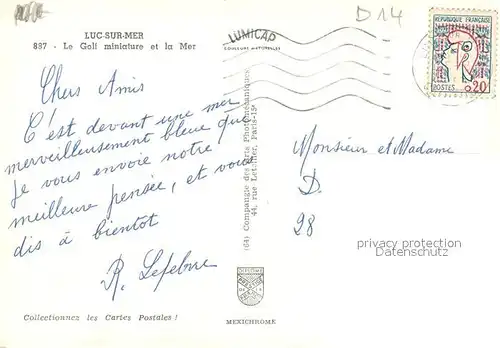 D14
LUC-SUR-MER
887 - Le Golf miniature et la Mer
LUMICAP
COULEURS NATURELLES
REPUBLIQUE FRANÇAISE
POSTES 0,20
Chers Amis
C'est devant une mer
merveilleusement bleue que
je vous envoie notre
meilleure pensée, et vous
dis à bientôt
R. Lefebvre
(64) Compagnie des Arts Photomécaniques
44, rue Letellier, Paris-15e
Monsieur et Madame
D.
28
privacy protection
Datenschutz
DIPLOME
PRESTIGE
Collectionnez les Cartes Postales !
MEXICHROME